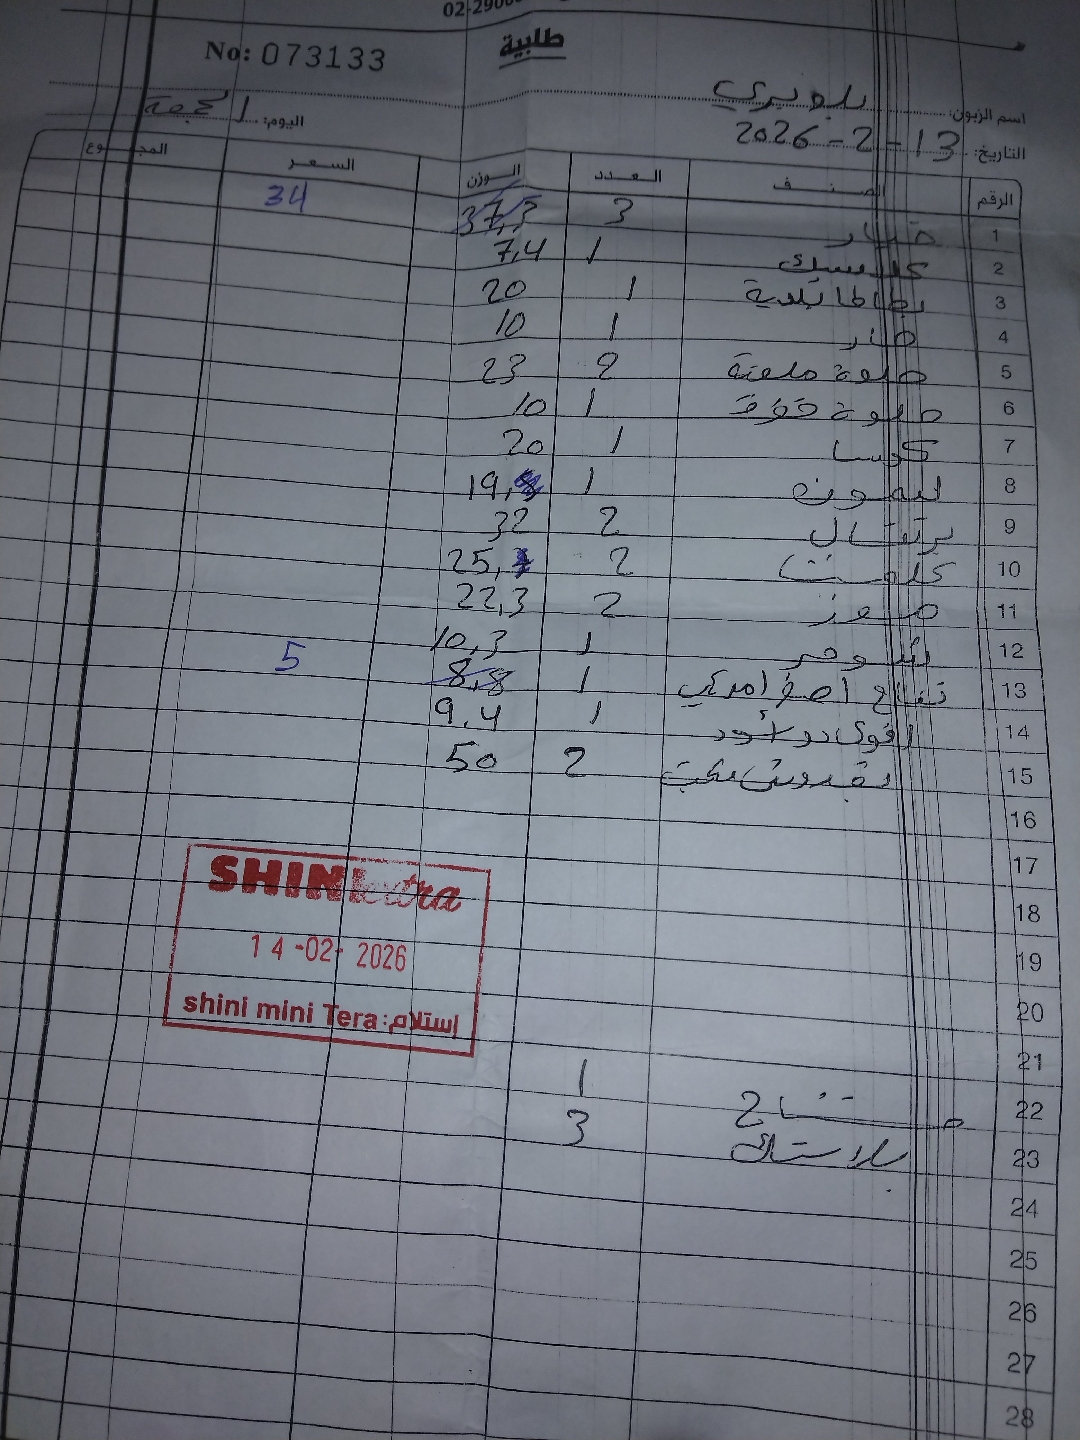 طلبية
No: 073133
اسم الزبون: بلوبيري
اليوم: الجمعة
التاريخ: 13-2-2026
الرقم الصنف العدد الوزن السعر المجموع
1 خيار 3 37,3 34
2 1 7,4
3 بطاطا بلدية 1 20
4 خيار 1 10
5 حلوة ملونة 2 23
6 حلوة 1 10
7 كوسا 1 20
8 ليمون 1 19
9 برتقال 2 32
10 كلمنتينا 2 25
11 موز 2 22,3
12 بوملي 1 10,3
13 تفاح اصفر امريكي 1 8,8 5
14 افوكادو 1 9,4
15 بقدونس 2 50
16
17
18
19
20
21
22 1
23 بلاستيك 3
24
25
26
27
28
SHINI extra
14-02-2026
shini mini Tera :إستلام